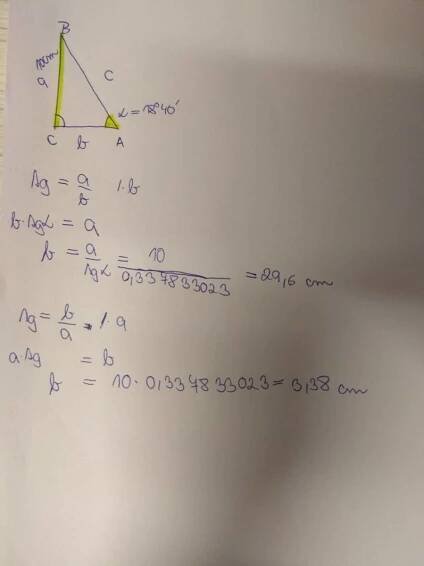 B
10cm
a
c
α = 18°40'
C
b
A
tg = a/b /·b
b·tgα = a
b = a/tgα = 10/0,337833023 = 29,6 cm
tg = b/a /·a
a tg = b
b = 10·0,337833023 = 3,38 cm